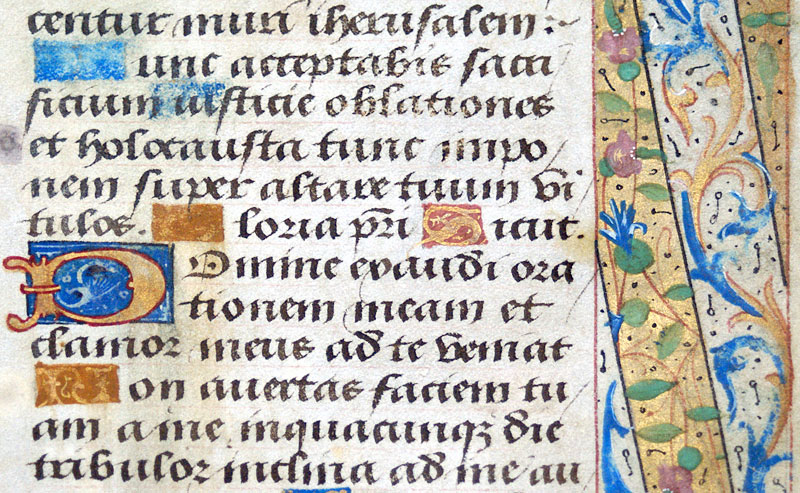 centur muri iherusalem:
unc acceptabis sacri
ficium iusticie oblationes
et holocausta tunc impo
nem super altare tuum vi
tulos. loria pri Sicut.
Domine exaudi ora
tionem meam et
clamor meus ad te veniat
Non avertas faciem tu
am a me inquacunqz die
tribulor inclina ad me au